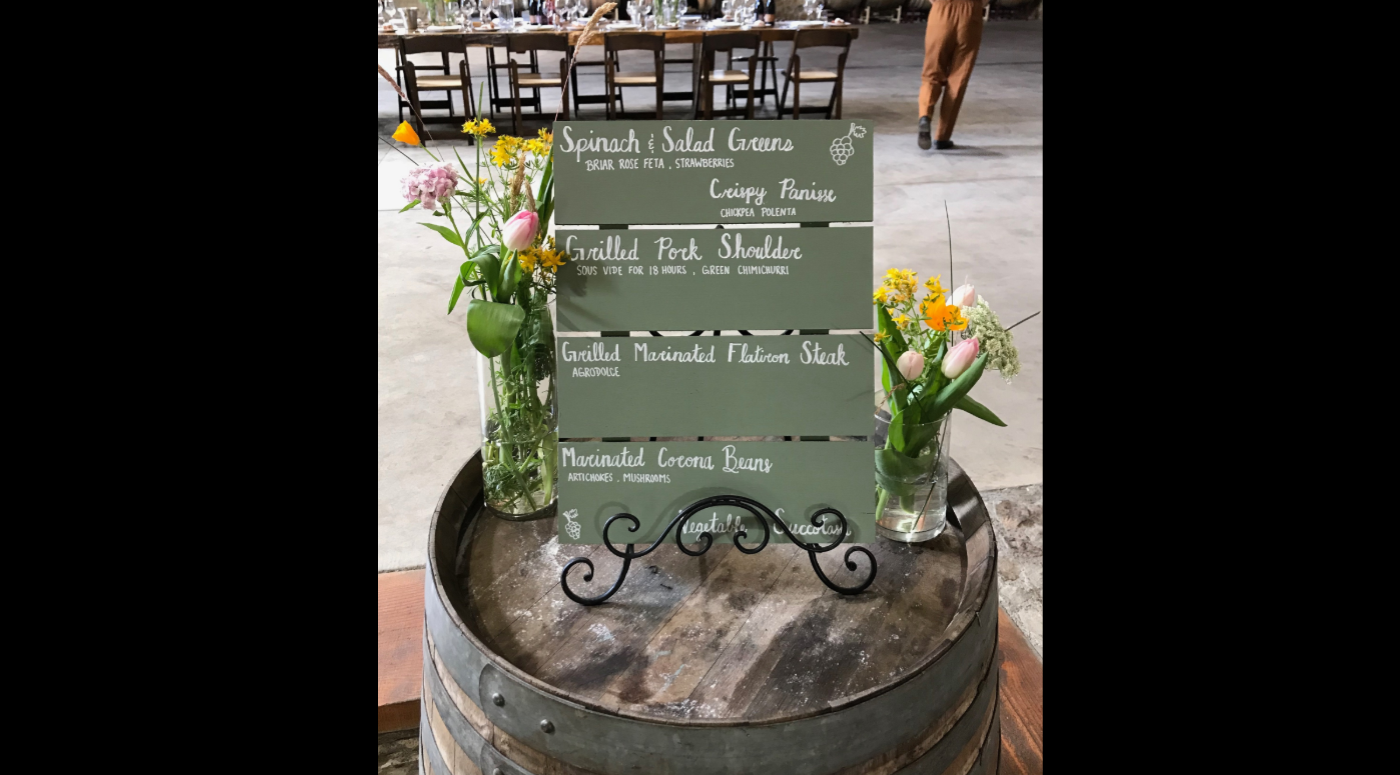 Spinach & Salad Greens
BRIAR ROSE FETA, STRAWBERRIES
Crispy Panisse
CHICKPEA POLENTA
Grilled Pork Shoulder
SOUS VIDE FOR 18 HOURS, GREEN CHIMICHURRI
Grilled Marinated Flatiron Steak
AGRODOLCE
Marinated Corona Beans
ARTICHOKES, MUSHROOMS
Vegetable Succotash